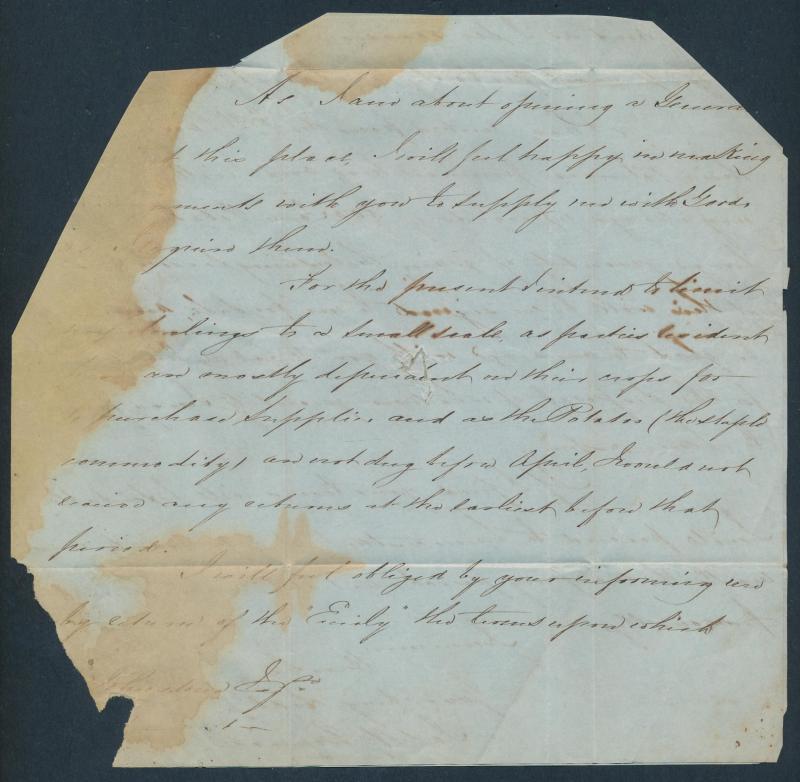 As I am about opening a Genera
t this place, I will feel happy in making
ments with you to supply me with Goods
quire them.
For the present I intend to limit
my dealings to a small scale, as parties resident
are mostly dependent on their crops for
to purchase Supplies and as the Potatoes (the staple
commodity) are not dug before April, I would not
receive any returns at the earliest before that
period.
I will feel obliged by your informing me
by return of the "Emily" the terms upon which
Esqr